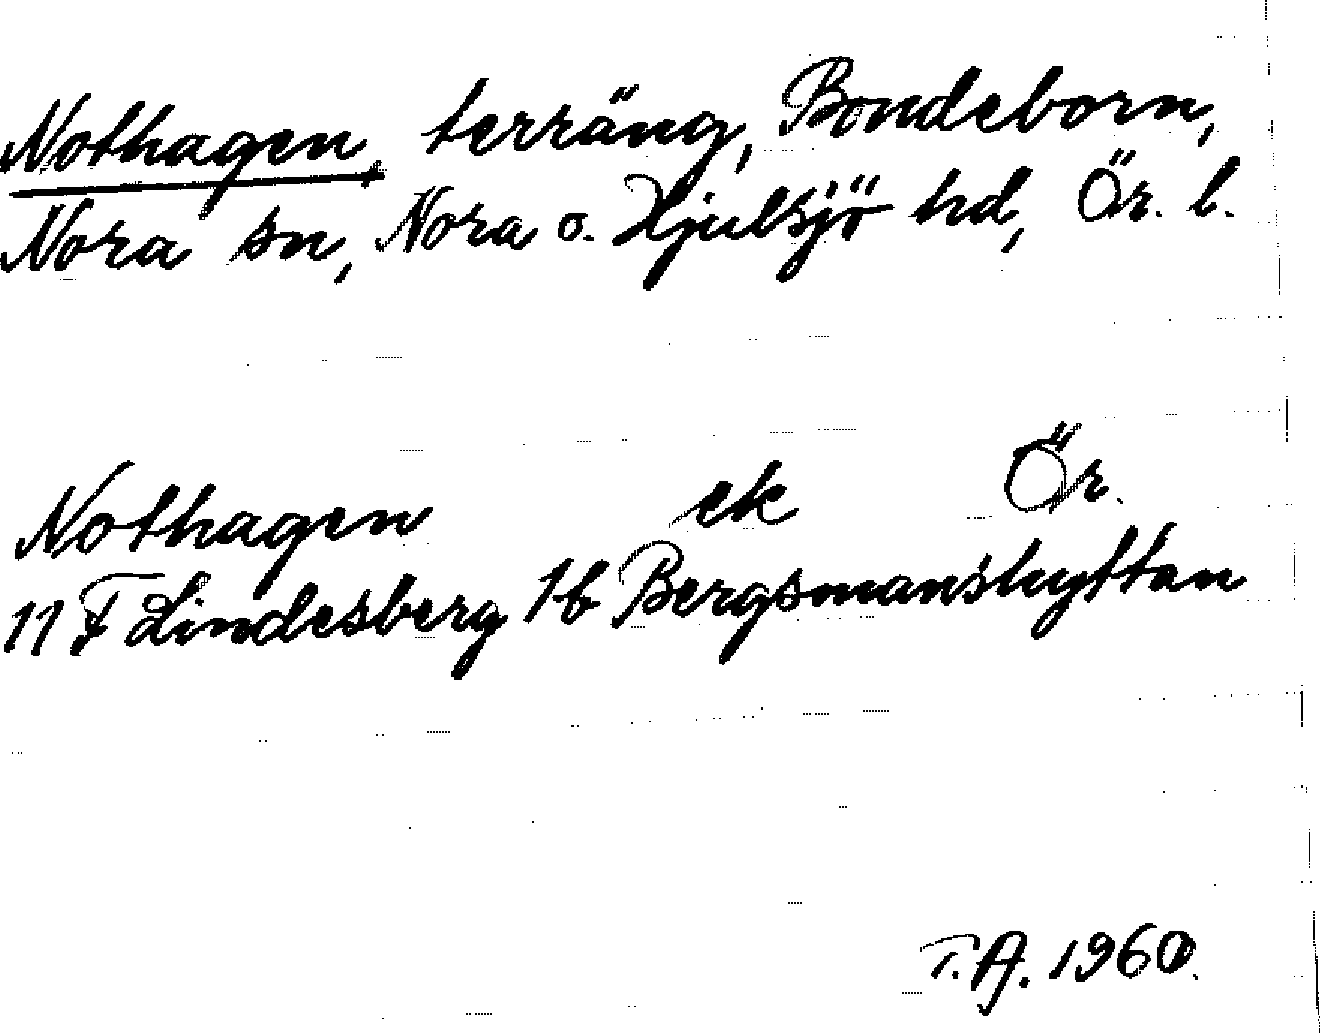 Nothagen, terräng, Bondeborn,
Nora sn, Nora o. Hjulsjö hd, Ör. l.
Nothagen ek Ör.
11 F Lindesberg 1b Bergsmanshyttan
T.A. 1960